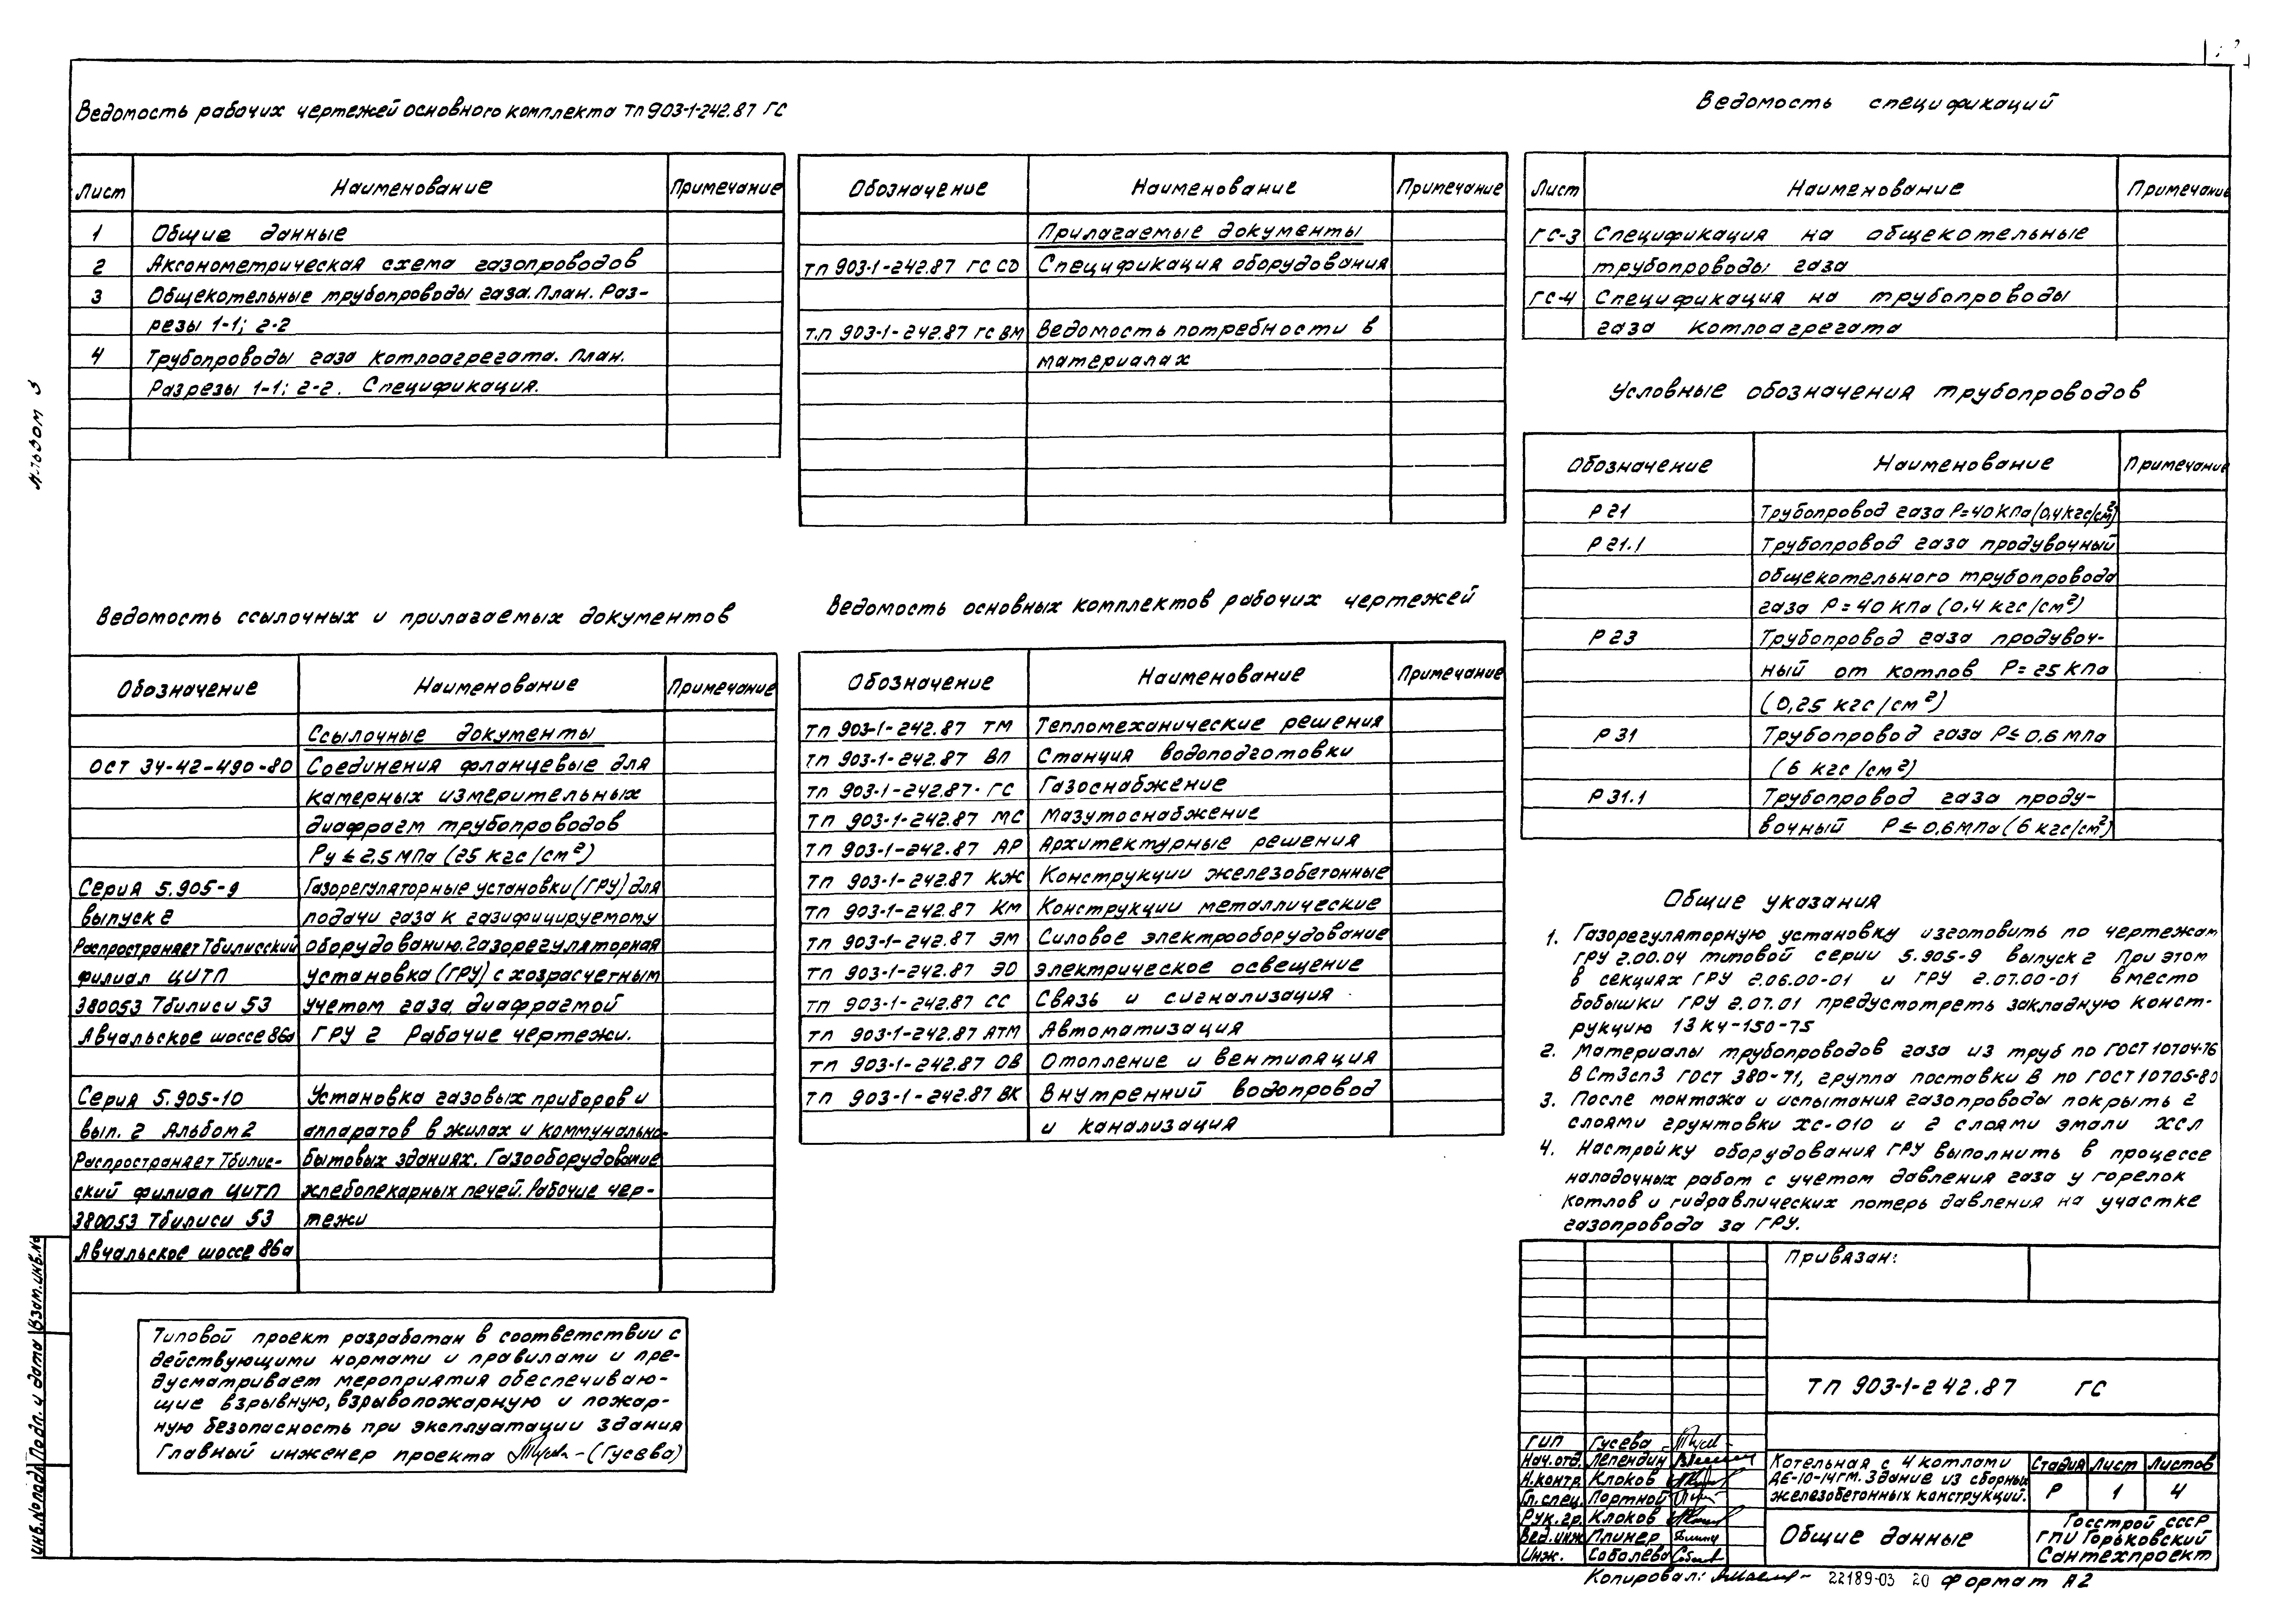 Ведомость рабочих чертежей основного комплекта ТП 903-1-242.87 ГС
Лист Наименование Примечание
1 Общие данные
2 Аксонометрическая схема газопроводов
3 Общекотельные трубопроводы газа. План. Раз-
резы 1-1; 2-2
4 Трубопроводы газа котлоагрегата. План.
Разрезы 1-1; 2-2. Спецификация.
Обозначение Наименование Примечание
Прилагаемые документы
ТП 903-1-242.87 ГС СО Спецификация оборудования
Т.П 903-1-242.87 ГС ВМ Ведомость потребности в
материалах
Ведомость спецификаций
Лист Наименование Примечание
ГС-3 Спецификация на общекотельные
трубопроводы газа
ГС-4 Спецификация на трубопроводы
газа котлоагрегата
Условные обозначения трубопроводов
Обозначение Наименование Примечание
Р21 Трубопровод газа Р=40 кПа (0,4 кгс/см²)
Р21.1 Трубопровод газа продувочный
общекотельного трубопровода
газа Р=40 кПа (0,4 кгс/см²)
Р23 Трубопровод газа продувоч-
ный от котлов Р=25 кПа
(0,25 кгс/см²)
Р31 Трубопровод газа Р≤0,6 МПа
(6 кгс/см²)
Р31.1 Трубопровод газа проду-
вочный Р≤0,6 МПа (6 кгс/см²)
Ведомость ссылочных и прилагаемых документов
Обозначение Наименование Примечание
Ссылочные документы
ОСТ 34-42-490-80 Соединения фланцевые для
камерных измерительных
диафрагм трубопроводов
Ру ≤ 2,5 МПа (25 кгс/см²)
Серия 5.905-9 Газорегуляторные установки (ГРУ) для
выпуск 2 подачи газа к газифицируемому
Распространяет Тбилисский оборудованию. Газорегуляторная
филиал ЦИТП установка (ГРУ) с хозрасчетным
380053 Тбилиси 53 учетом газа диафрагмой
Авчальское шоссе 86а ГРУ 2 Рабочие чертежи.
Серия 5.905-10 Установка газовых приборов и
вып. 2 Альбом 2 аппаратов в жилах и коммунально-
Распространяет Тбилис- бытовых зданиях. Газооборудование
ский филиал ЦИТП хлебопекарных печей. Рабочие чер-
380053 Тбилиси 53 тежи
Авчальское шоссе 86а
Ведомость основных комплектов рабочих чертежей
Обозначение Наименование Примечание
ТП 903-1-242.87 ТМ Тепломеханические решения
ТП 903-1-242.87 ВП Станция водоподготовки
ТП 903-1-242.87 ГС Газоснабжение
ТП 903-1-242.87 МС Мазутоснабжение
ТП 903-1-242.87 АР Архитектурные решения
ТП 903-1-242.87 КЖ Конструкции железобетонные
ТП 903-1-242.87 КМ Конструкции металлические
ТП 903-1-242.87 ЭМ Силовое электрооборудование
ТП 903-1-242.87 ЭО Электрическое освещение
ТП 903-1-242.87 СС Связь и сигнализация
ТП 903-1-242.87 АТМ Автоматизация
ТП 903-1-242.87 ОВ Отопление и вентиляция
ТП 903-1-242.87 ВК Внутренний водопровод
и канализация
Общие указания
1. Газорегуляторную установку изготовить по чертежам
ГРУ 2.00.04 типовой серии 5.905-9 выпуск 2 При этом
в секциях ГРУ 2.06.00-01 и ГРУ 2.07.00-01 вместо
бобышки ГРУ 2.07.01 предусмотреть закладную конст-
рукцию 13К4-150-75
2. Материалы трубопроводов газа из труб по ГОСТ 10704-76
В Ст3сп3 ГОСТ 380-71, группа поставки В по ГОСТ 10705-80
3. После монтажа и испытания газопроводы покрыть 2
слоями грунтовки ХС-010 и 2 слоями эмали ХСЛ
4. Настройку оборудования ГРУ выполнить в процессе
наладочных работ с учетом давления газа у горелок
котлов и гидравлических потерь давления на участке
газопровода за ГРУ.
Типовой проект разработан в соответствии с
действующими нормами и правилами и пре-
дусматривает мероприятия обеспечиваю-
щие взрывную, взрывопожарную и пожар-
ную безопасность при эксплуатации здания
Главный инженер проекта (Гусева)
Привязан:
ТП 903-1-242.87 ГС
ГИП Гусева
Нач.отд. Лепендин
Н.контр. Клоков
Гл.спец. Портной
Рук.гр. Клоков
Вед.инж Плинер
Инж. Соболева
Котельная с 4 котлами
ДЕ-10-14ГМ. Здание из сборных
железобетонных конструкций.
Стадия Лист Листов
Р 1 4
Общие данные
Госстрой СССР
ГПИ Горьковский
Сантехпроект
Копировал: 22189-03 20 Формат А2
Альбом 3
Инв.№подл. Подп. и дата Взам.инв.№